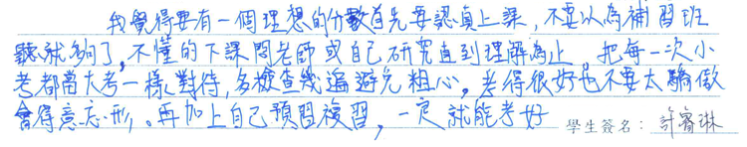 我覺得要有一個理想的分數首先要認真上課，不要以為補習班
聽就夠了，不懂的下課問老師或自己研究直到理解為止。把每一次小
考都當大考一樣對待，多檢查幾遍避免粗心。考得很好也不要太驕傲
會得意忘形，。再加上自己預習複習，一定就能考好 學生簽名：許睿琳